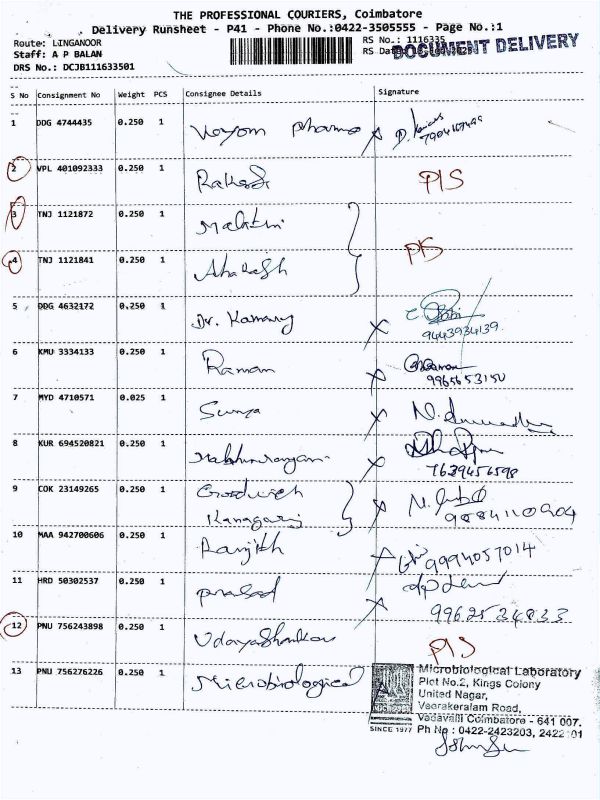 THE PROFESSIONAL COURIERS, Coimbatore
Delivery Runsheet - P41 - Phone No.:0422-3505555 - Page No.:1
Route: LINGANOOR
RS No.: 1116335
Staff: A P BALAN
RS Date
DOCUMENT DELIVERY
DRS No.: DCJB111633501
S No Consignment No Weight PCS Consignee Details Signature
1 DDG 4744435 0.250 1 pharma
2 VPL 401092333 0.250 1 Rakesh PIS
3 TNJ 1121872 0.250 1 Malathi
4 TNJ 1121841 0.250 1 PIS
5 DDG 4632172 0.250 1 Dr.
9443934139.
6 KMU 3334133 0.250 1 Raman
9965653150
7 MYD 4710571 0.025 1 Surya
8 KUR 694520821 0.250 1
7639456598
9 COK 23149265 0.250 1
Kanagaraj 9884110904
10 MAA 942700606 0.250 1 Ranjith 9994057014
11 HRD 50302537 0.250 1 prasad
12 PNU 756243898 0.250 1 Udayashankar PIS
13 PNU 756276226 0.250 1 Microbiological
Microbiological Laboratory
Plot No.2, Kings Colony
United Nagar,
Veerakeralam Road,
Vadavalli Coimbatore - 641 007.
SINCE 1977 Ph No : 0422-2423203, 2422101